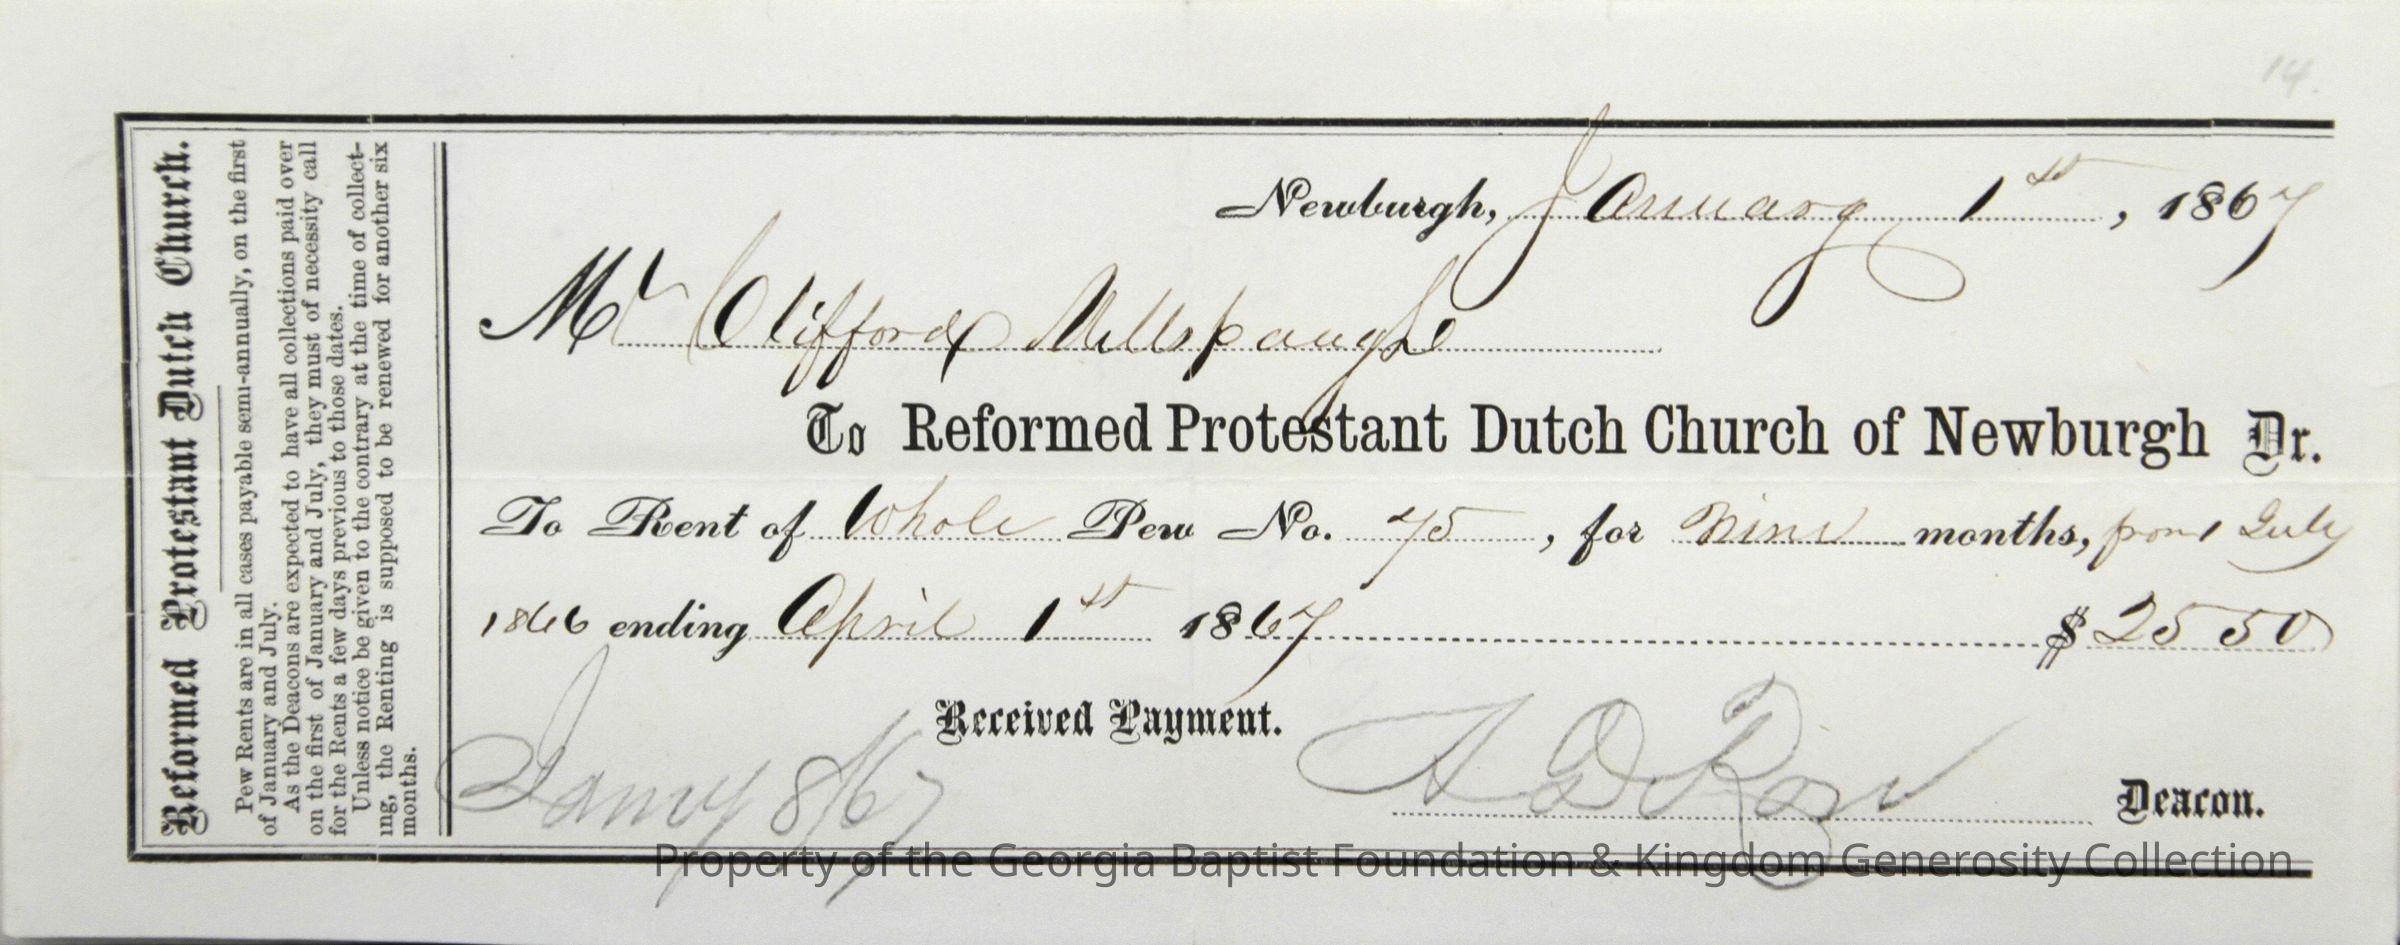 14.
Reformed Protestant Dutch Church.
Pew Rents are in all cases payable semi-annually, on the first
of January and July.
As the Deacons are expected to have all collections paid over
on the first of January and July, they must of necessity call
for the Rents a few days previous to those dates.
Unless notice be given to the contrary at the time of collect-
ing, the Renting is supposed to be renewed for another six
months.
Newburgh, January 1st, 1867
Mr Clifford Millspaugh
To Reformed Protestant Dutch Church of Newburgh Dr.
To Rent of Whole Pew No. 75, for Nine months, from 1 July
1866 ending April 1st 1867 $ 25 50
Received Payment.
Jany 8/67
Deacon.
Property of the Georgia Baptist Foundation & Kingdom Generosity Collection